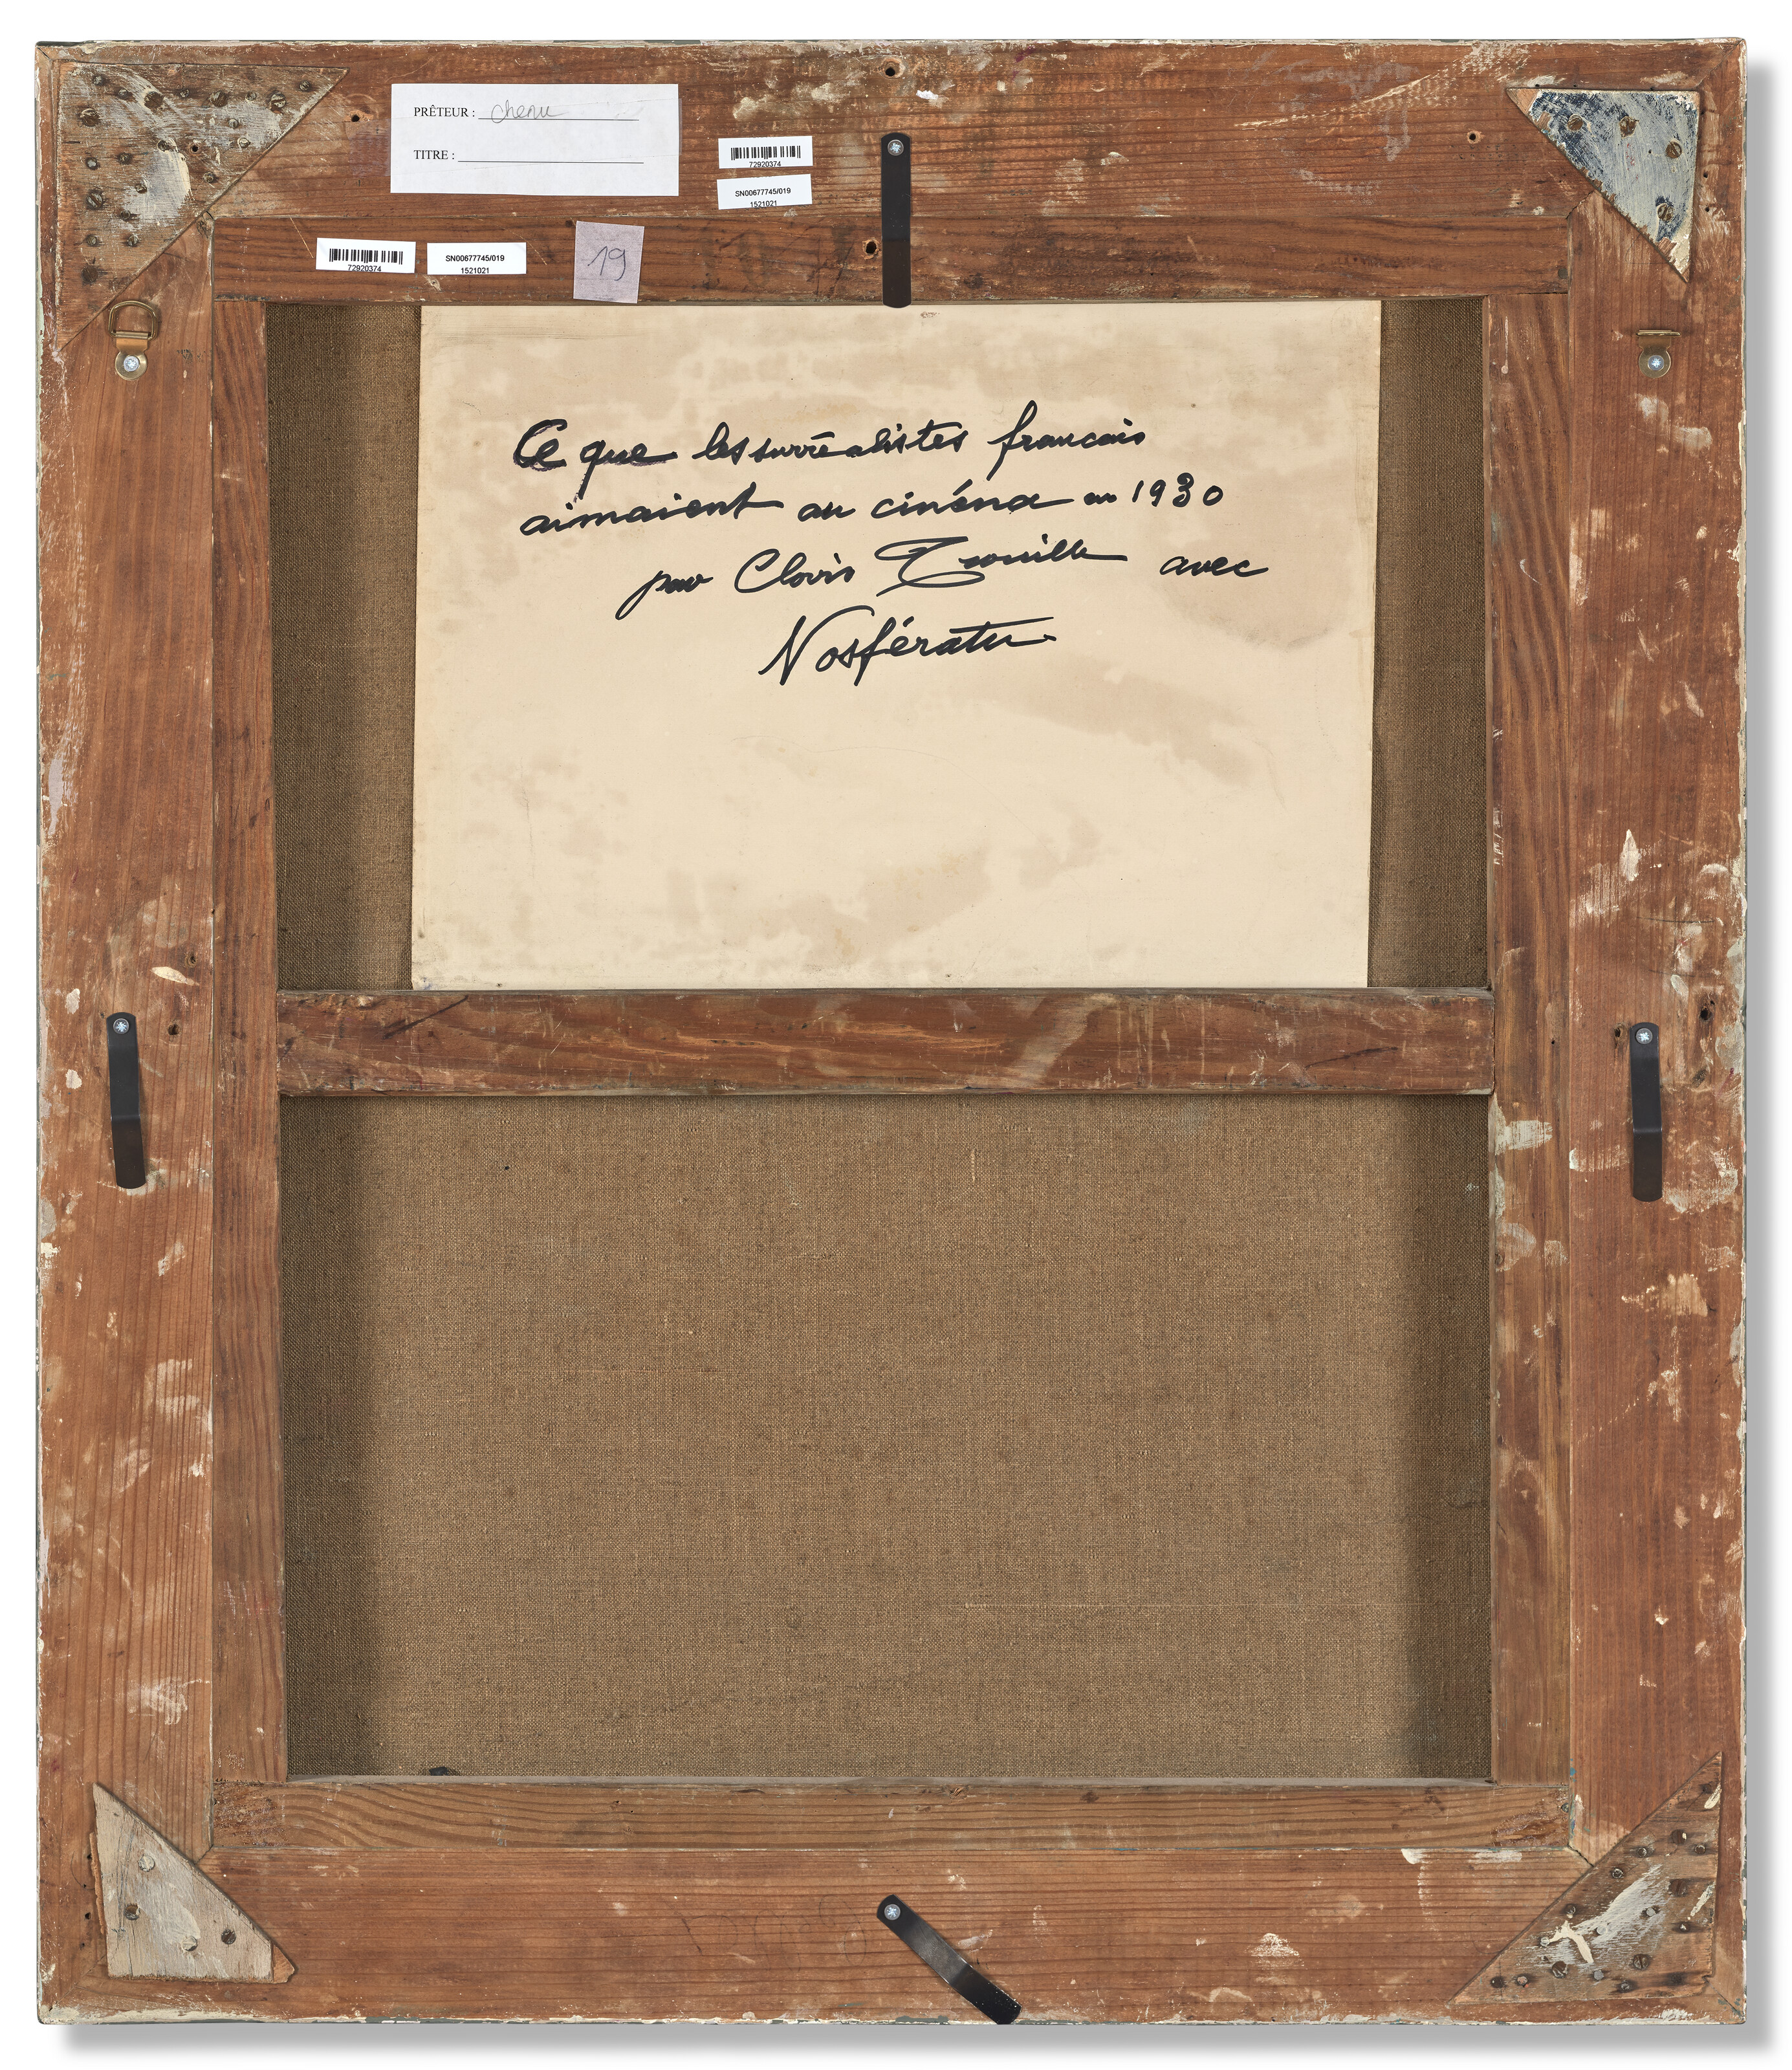 PRÊTEUR : chenu
TITRE :
72920374
SN00677745/019
1521021
72920374
SN00677745/019
1521021
19
Ce que les surréalistes francais
aimaient au cinéma en 1930
par Clovis Trouille avec
Nosfératu